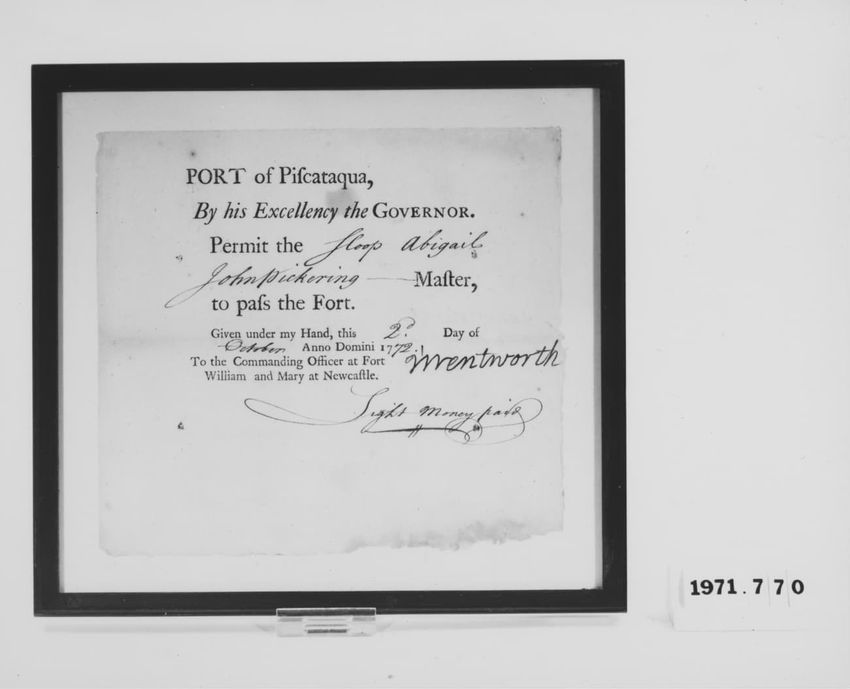 PORT of Piſcataqua,
By his Excellency the GOVERNOR.
Permit the Sloop Abigail
John Pickering Maſter,
to paſs the Fort.
Given under my Hand, this 2d Day of
October Anno Domini 1772.
To the Commanding Officer at Fort JWentworth
William and Mary at Newcaſtle.
Light Money paid
1971.770